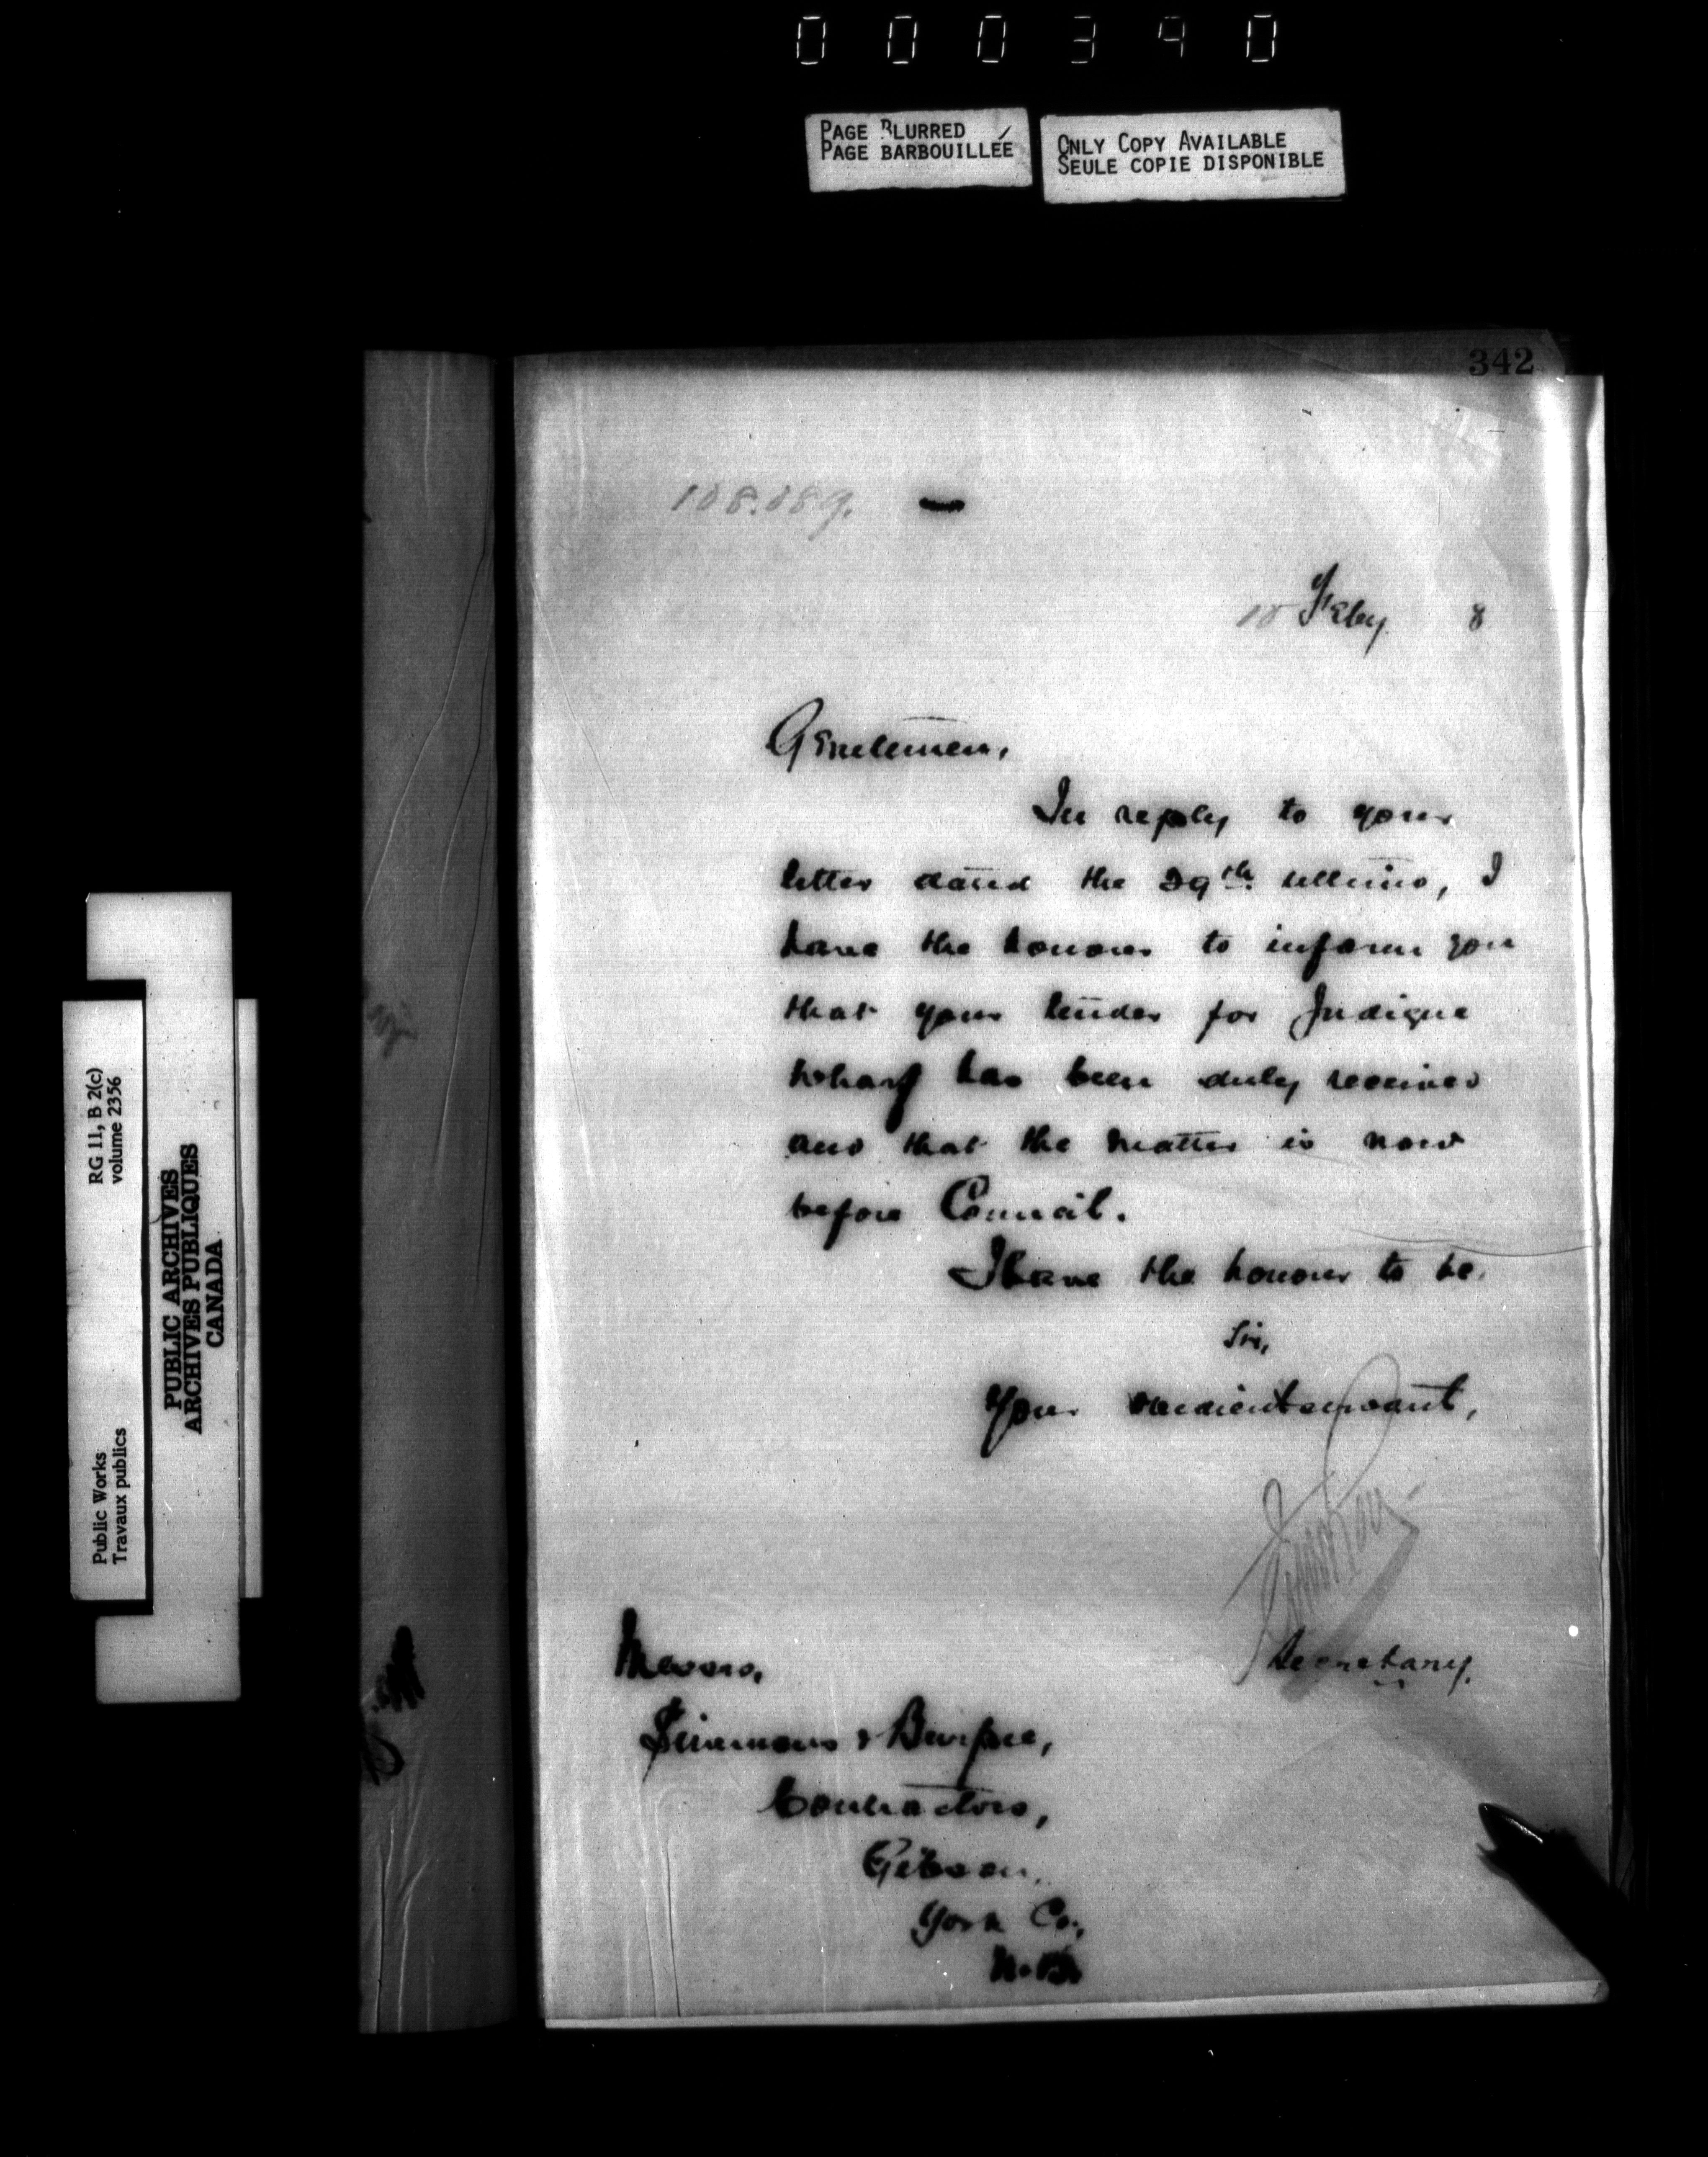 000390
PAGE BLURRED
PAGE BARBOUILLÉE
ONLY COPY AVAILABLE
SEULE COPIE DISPONIBLE
342
108.089.
10 Feby 8
Gentlemen,
In reply to your
letter dated the 29th ultimo, I
have the honour to inform you
that your tender for Judique
Wharf has been duly received
and that the matter is now
before Council.
I have the honour to be,
Sir,
Your obedient servant,
Secretary.
Messrs.
Simmons & Burpee,
Contractors,
Gibson,
York Co.,
N.B.
RG 11, B 2(c)
volume 2356
PUBLIC ARCHIVES
ARCHIVES PUBLIQUES
CANADA
Public Works
Travaux publics